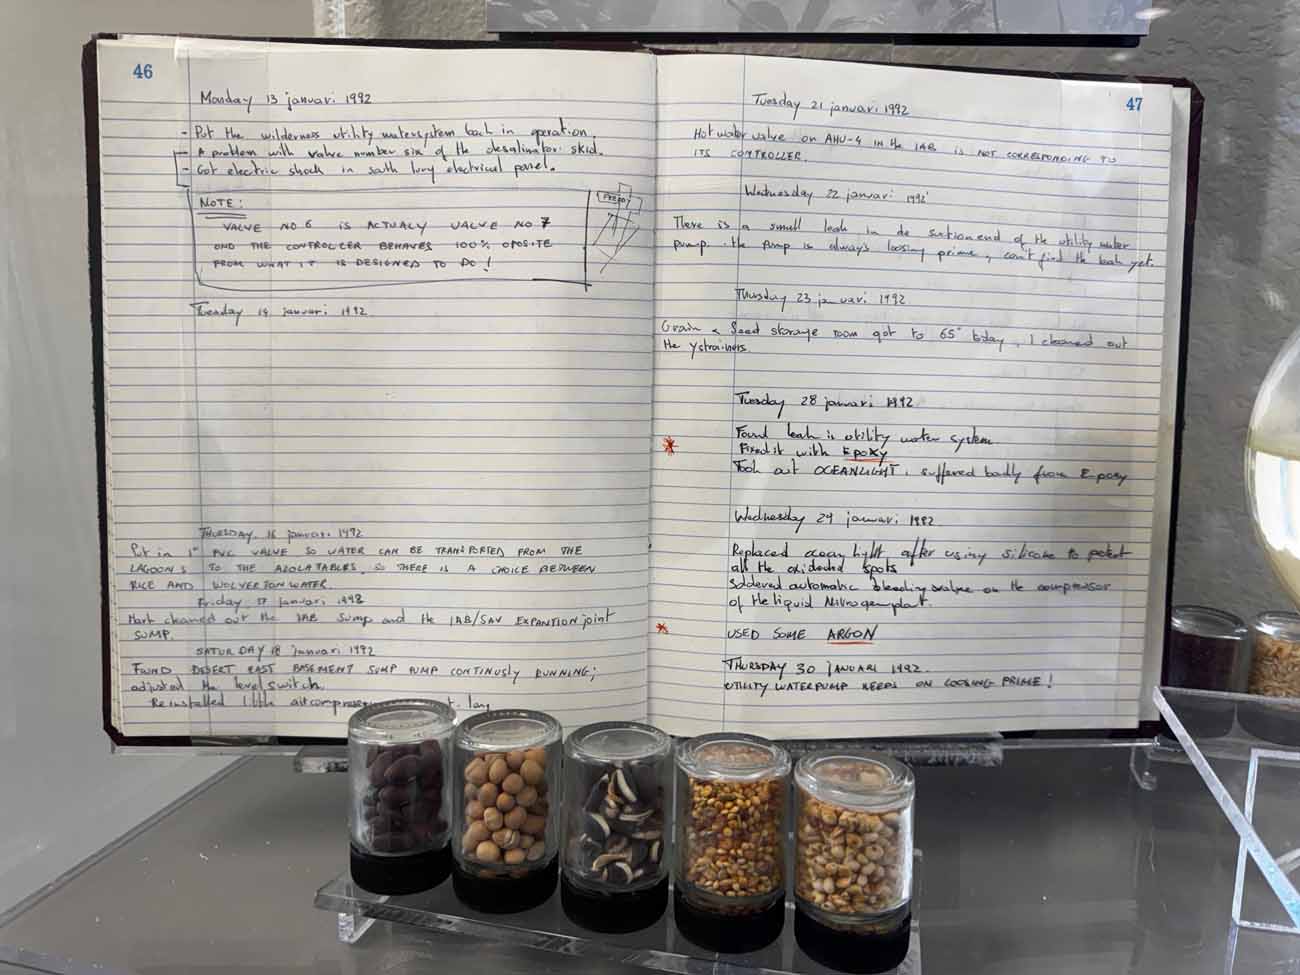 46
Monday 13 januari 1992
- Put the wilderness utility watersystem back in operation.
- A problem with valve number six of the desalinator skid.
- Got electric shock in south lung electrical panel.
NOTE:
VALVE NO 6 IS ACTUALY VALVE NO 7
AND THE CONTROLLER BEHAVES 100% OPOSITE
FROM WHAT IT IS DESIGNED TO DO!
Tuesday 14 januari 1992
THURSDAY. 16 januari 1992
Put in 1" PVC VALVE SO WATER CAN BE TRANSPORTED FROM THE
LAGOONS TO THE AZOLATABLES. SO THERE IS A CHOICE BETWEEN
RICE AND WOLVERTON WATER.
Friday 17 januari 1992
Mark cleaned out the IAB sump and the IAB/SAV EXPANTION joint
SUMP.
SATURDAY 18 januari 1992
FOUND DESERT EAST BASEMENT SUMP PUMP CONTINUSLY RUNNING;
adjusted the levelswitch.
Reinstalled little aircompress
47
Tuesday 21 januari 1992
Hot water valve on AHU-4 IN the IAB IS NOT CORRESPONDING TO
ITS CONTROLLER.
Wednesday 22 januari 1992
There is a small leak in de suctionend of the utility water
pump. the pump is always loosing prime, can't find the leak yet.
Thursday 23 januari 1992
Grain & Seed storage room got to 65° today, I cleaned out
the ystrainers.
Tuesday 28 januari 1992
Found leak in utility water system
Fixed it with EPOXY
Took out OCEANLIGHT, suffered badly from Epoxy
Wednesday 29 januari 1992
Replaced ocean light after using silicone to protect
all the oxidated spots
Soldered automatic bleeding valve on the compressor
of the liquid Nitrogenplant.
USED SOME ARGON
THURSDAY 30 JANUARI 1992.
UTILITY WATERPUMP KEEPS ON LOOSING PRIME!